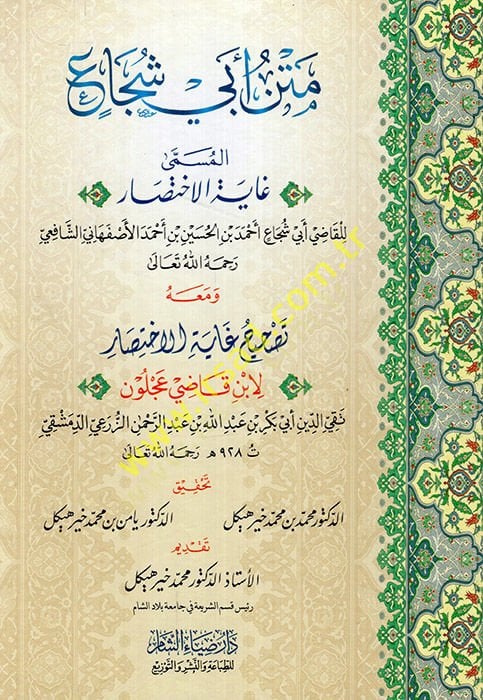 مَتْنُ أَبِي شُجَاعٍ
المُسَمَّى
غَايَةَ الاخْتِصَارِ
لِلْقَاضِي أَبِي شُجَاعٍ أَحْمَدَ بْنِ الحُسَيْنِ بْنِ أَحْمَدَ الأَصْفَهَانِيِّ الشَّافِعِيِّ
رَحِمَهُ اللهُ تَعَالَى
وَمَعَهُ
تَصْحِيحُ غَايَةِ الاخْتِصَارِ
لِابْنِ قَاضِي عَجْلُونَ
تَقِيِّ الدِّينِ أَبِي بَكْرِ بْنِ عَبْدِ اللهِ بْنِ عَبْدِ الرَّحْمٰنِ الزُّرَعِيِّ الدِّمَشْقِيِّ
ت ٩٢٨ هـ رَحِمَهُ اللهُ تَعَالَى
تحقيق
الدكتور محمد بن محمد خير هيكل الدكتور يامن بن محمد خير هيكل
تقديم
الأستاذ الدكتور محمد خير هيكل
رئيس قسم الشريعة في جامعة بلاد الشام
دَارُ ضِيَاءِ الشَّامِ
للطباعة والنشر والتوزيع